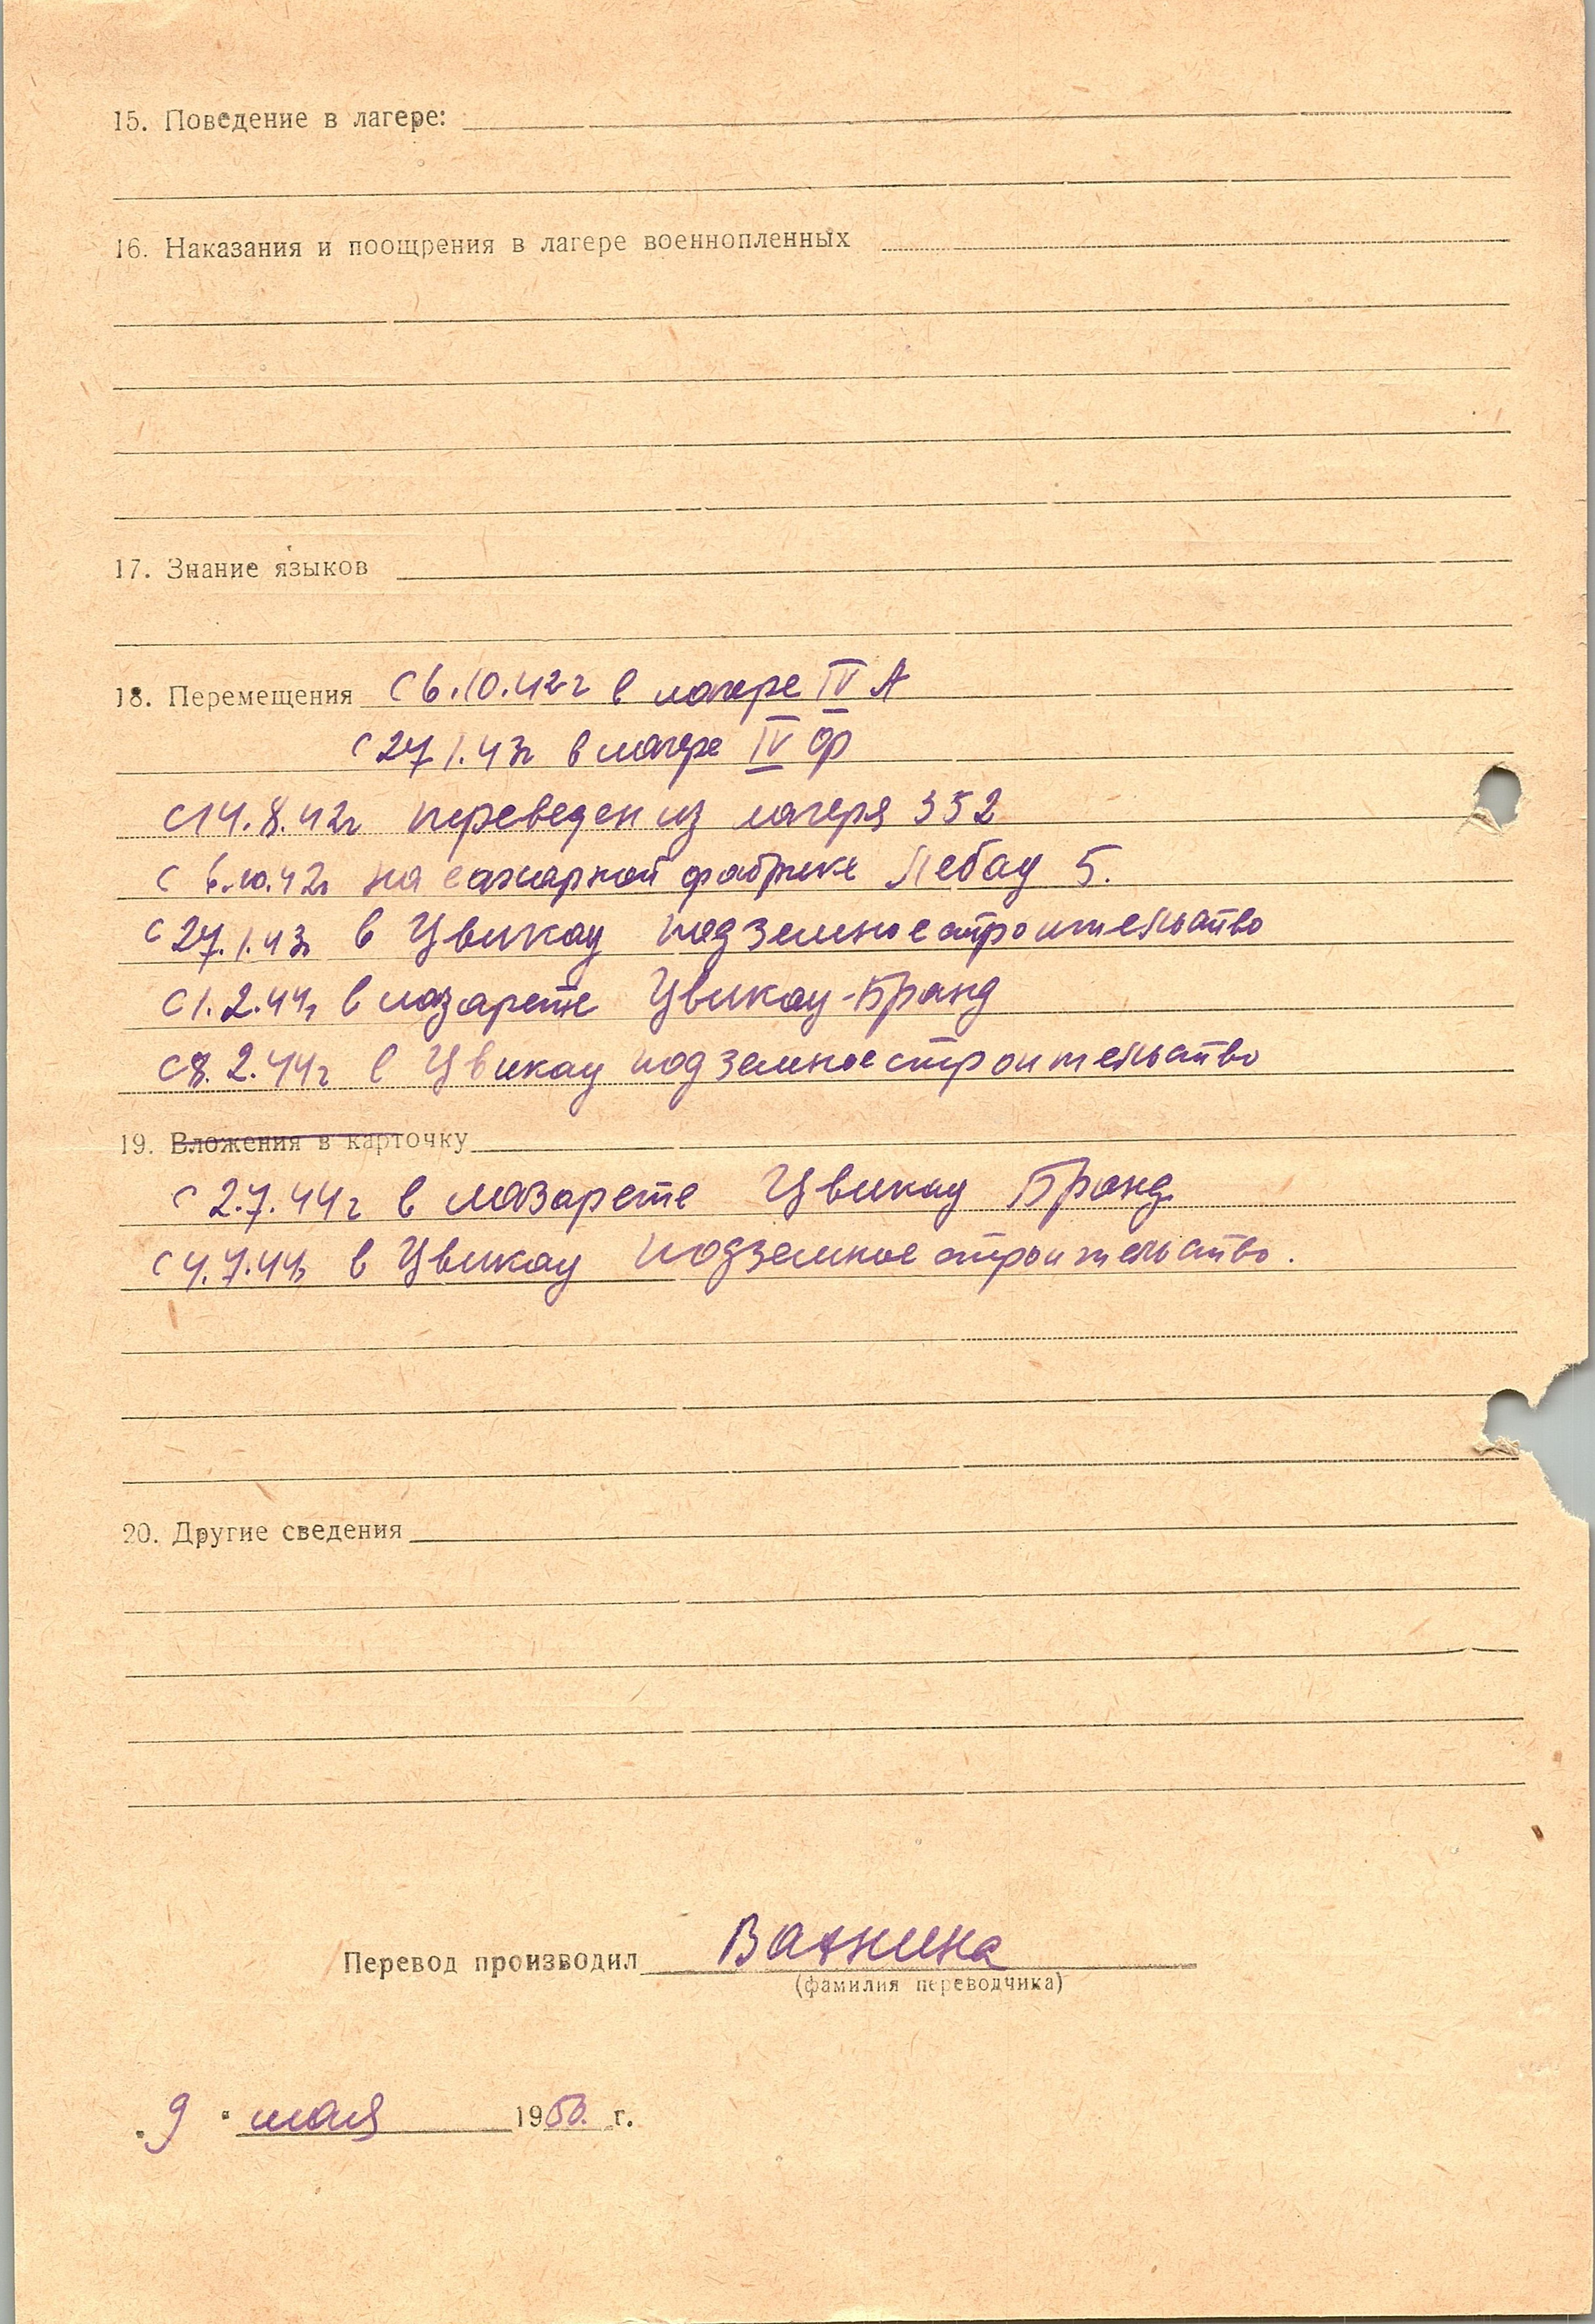 15. Поведение в лагере:
16. Наказания и поощрения в лагере военнопленных
17. Знание языков
18. Перемещения С 6.10.42 г в лагере IV А
С 27.1.43г в лагере IV Ф
С 14.8.42г переведен из лагеря 352
С 6.10.42г на сахарной фабрике Лебау 5.
С 27.1.43г в Цвикау подземное строительство
С 1.2.44г в лазарете Цвикау-Бранд
С 8.2.44г в Цвикау подземное строительство
19. Вложения в карточку
С 2.7.44 г в лазарете Цвикау Бранд
С 4.7.44г в Цвикау подземное строительство.
20. Другие сведения
Перевод производил
(фамилия переводчика)
„ 9 " мая 1950. г.